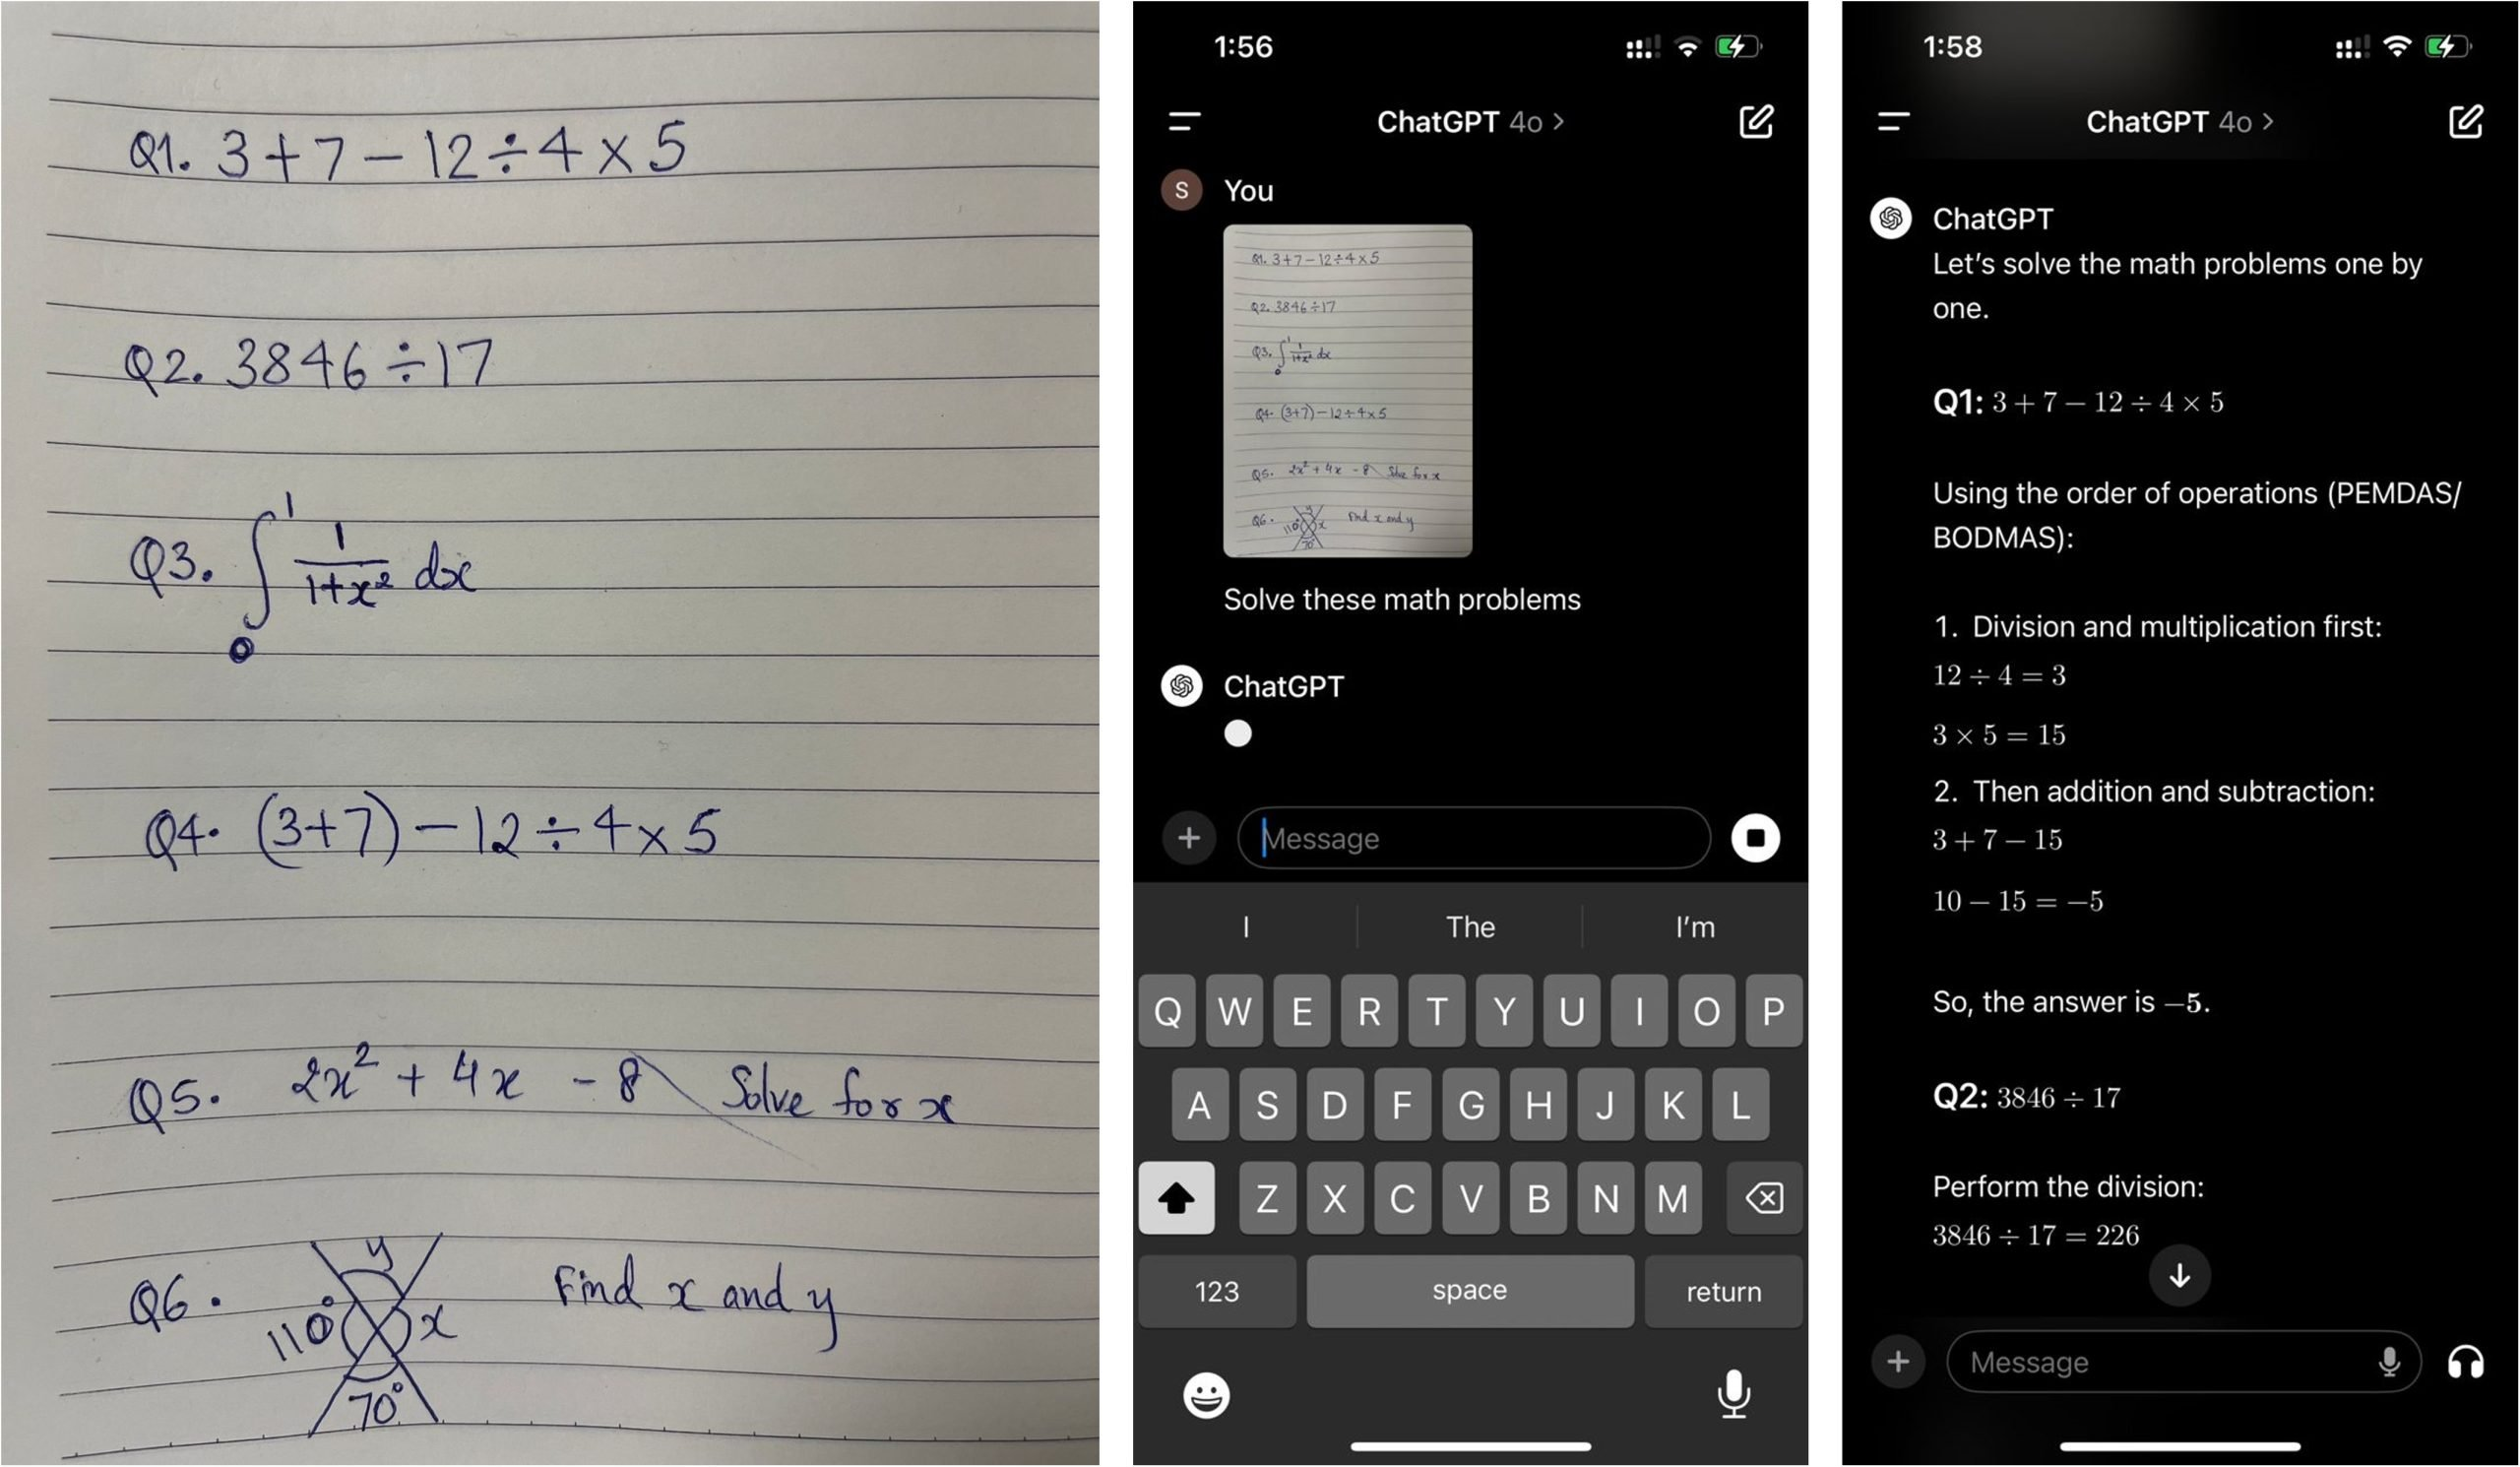 Q1. 3+7-12÷4×5
Q2. 3846÷17
Q3. ∫₀¹ 1/(1+x²) dx
Q4. (3+7)-12÷4×5
Q5. 2x² + 4x - 8 Solve for x
Q6. y 110° x 70° Find x and y
1:56
ChatGPT 4o >
S You
Q1. 3+7-12÷4×5
Q2. 3846÷17
Q3. ∫₀¹ 1/(1+x²) dx
Q4. (3+7)-12÷4×5
Q5. 2x² + 4x - 8 Solve for x
Q6. y 110° x 70° Find x and y
Solve these math problems
ChatGPT
Message
I The I'm
Q W E R T Y U I O P
A S D F G H J K L
Z X C V B N M
123 space return
1:58
ChatGPT 4o >
ChatGPT
Let's solve the math problems one by
one.
Q1: 3 + 7 – 12 ÷ 4 × 5
Using the order of operations (PEMDAS/
BODMAS):
1. Division and multiplication first:
12 ÷ 4 = 3
3 × 5 = 15
2. Then addition and subtraction:
3 + 7 – 15
10 – 15 = –5
So, the answer is –5.
Q2: 3846 ÷ 17
Perform the division:
3846 ÷ 17 = 226
Message